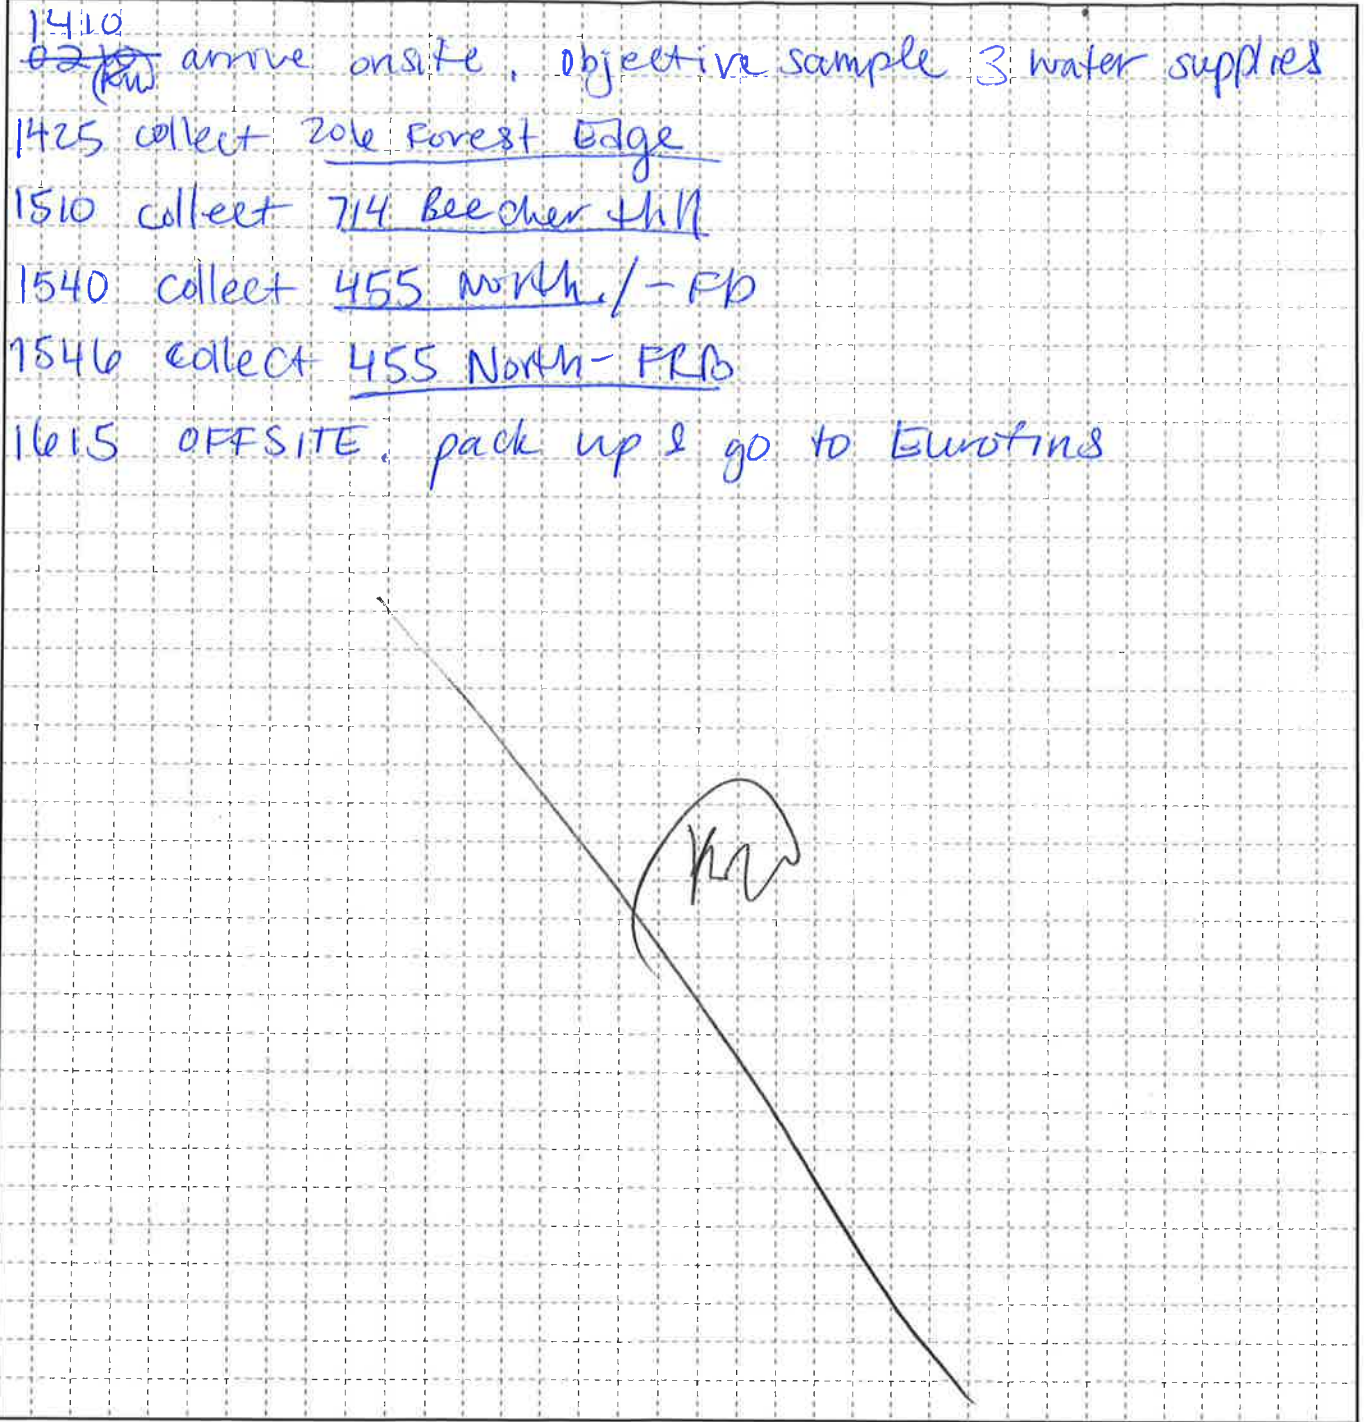 1410
0210 KW arrive onsite. Objective sample 3 water supplies
1425 collect 206 Forest Edge
1510 collect 714 Beecher Hill
1540 collect 455 North./-FD
1546 collect 455 North-FRB
1615 OFFSITE. pack up & go to Eurofins
KW